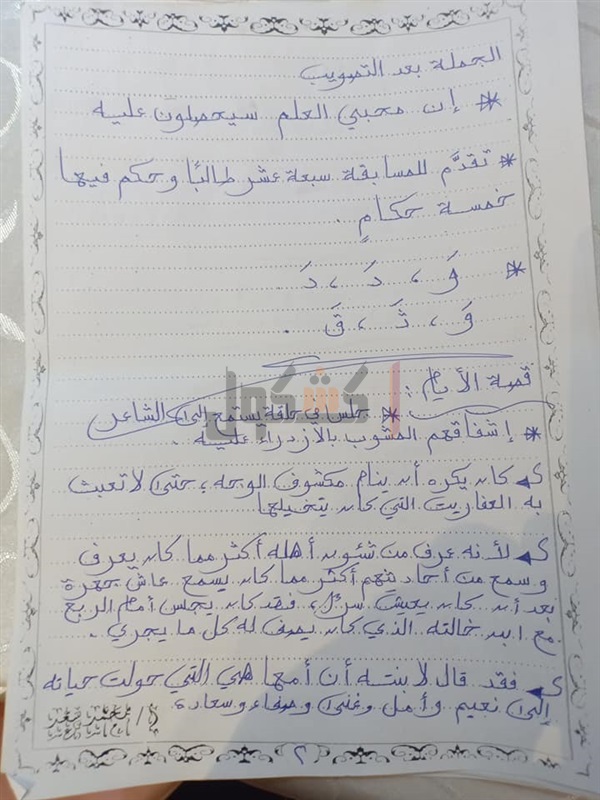 الجملة بعد التصويب
* إن محبي العلم سيحصلون عليه
* تقدَّم للمسابقة سبعة عشر طالبًا وحكم فيها
خمسة حكامٍ
* وَ ، دَ ، دَ
وَ ، ثَ ، قَ .
كشكول
قصة الأيام :
* جلس في حلقة يستمع إلى الشاعر
* إشفاقهم المشوب بالازدراء عليه .
كان يكره أن ينام مكشوف الوجه ، حتى لا تعبث
به العفاريت التي كان يتخيلها
لأنه عرف من شئون أهله أكثر مما كان يعرف
وسمع من أحاديثهم أكثر مما كان يسمع عاش جهرة
بعد أن كان يعيش سرًا ، فقد كان يجلس أمام الربع
مع ابن خالته الذي كان يصف له كل ما يجري .
فقد قال لابنته أن أمها هي التي حولت حياته
إلى نعيم وأمل وغنى وصفاء وسعادة
أ/ محمد
٢